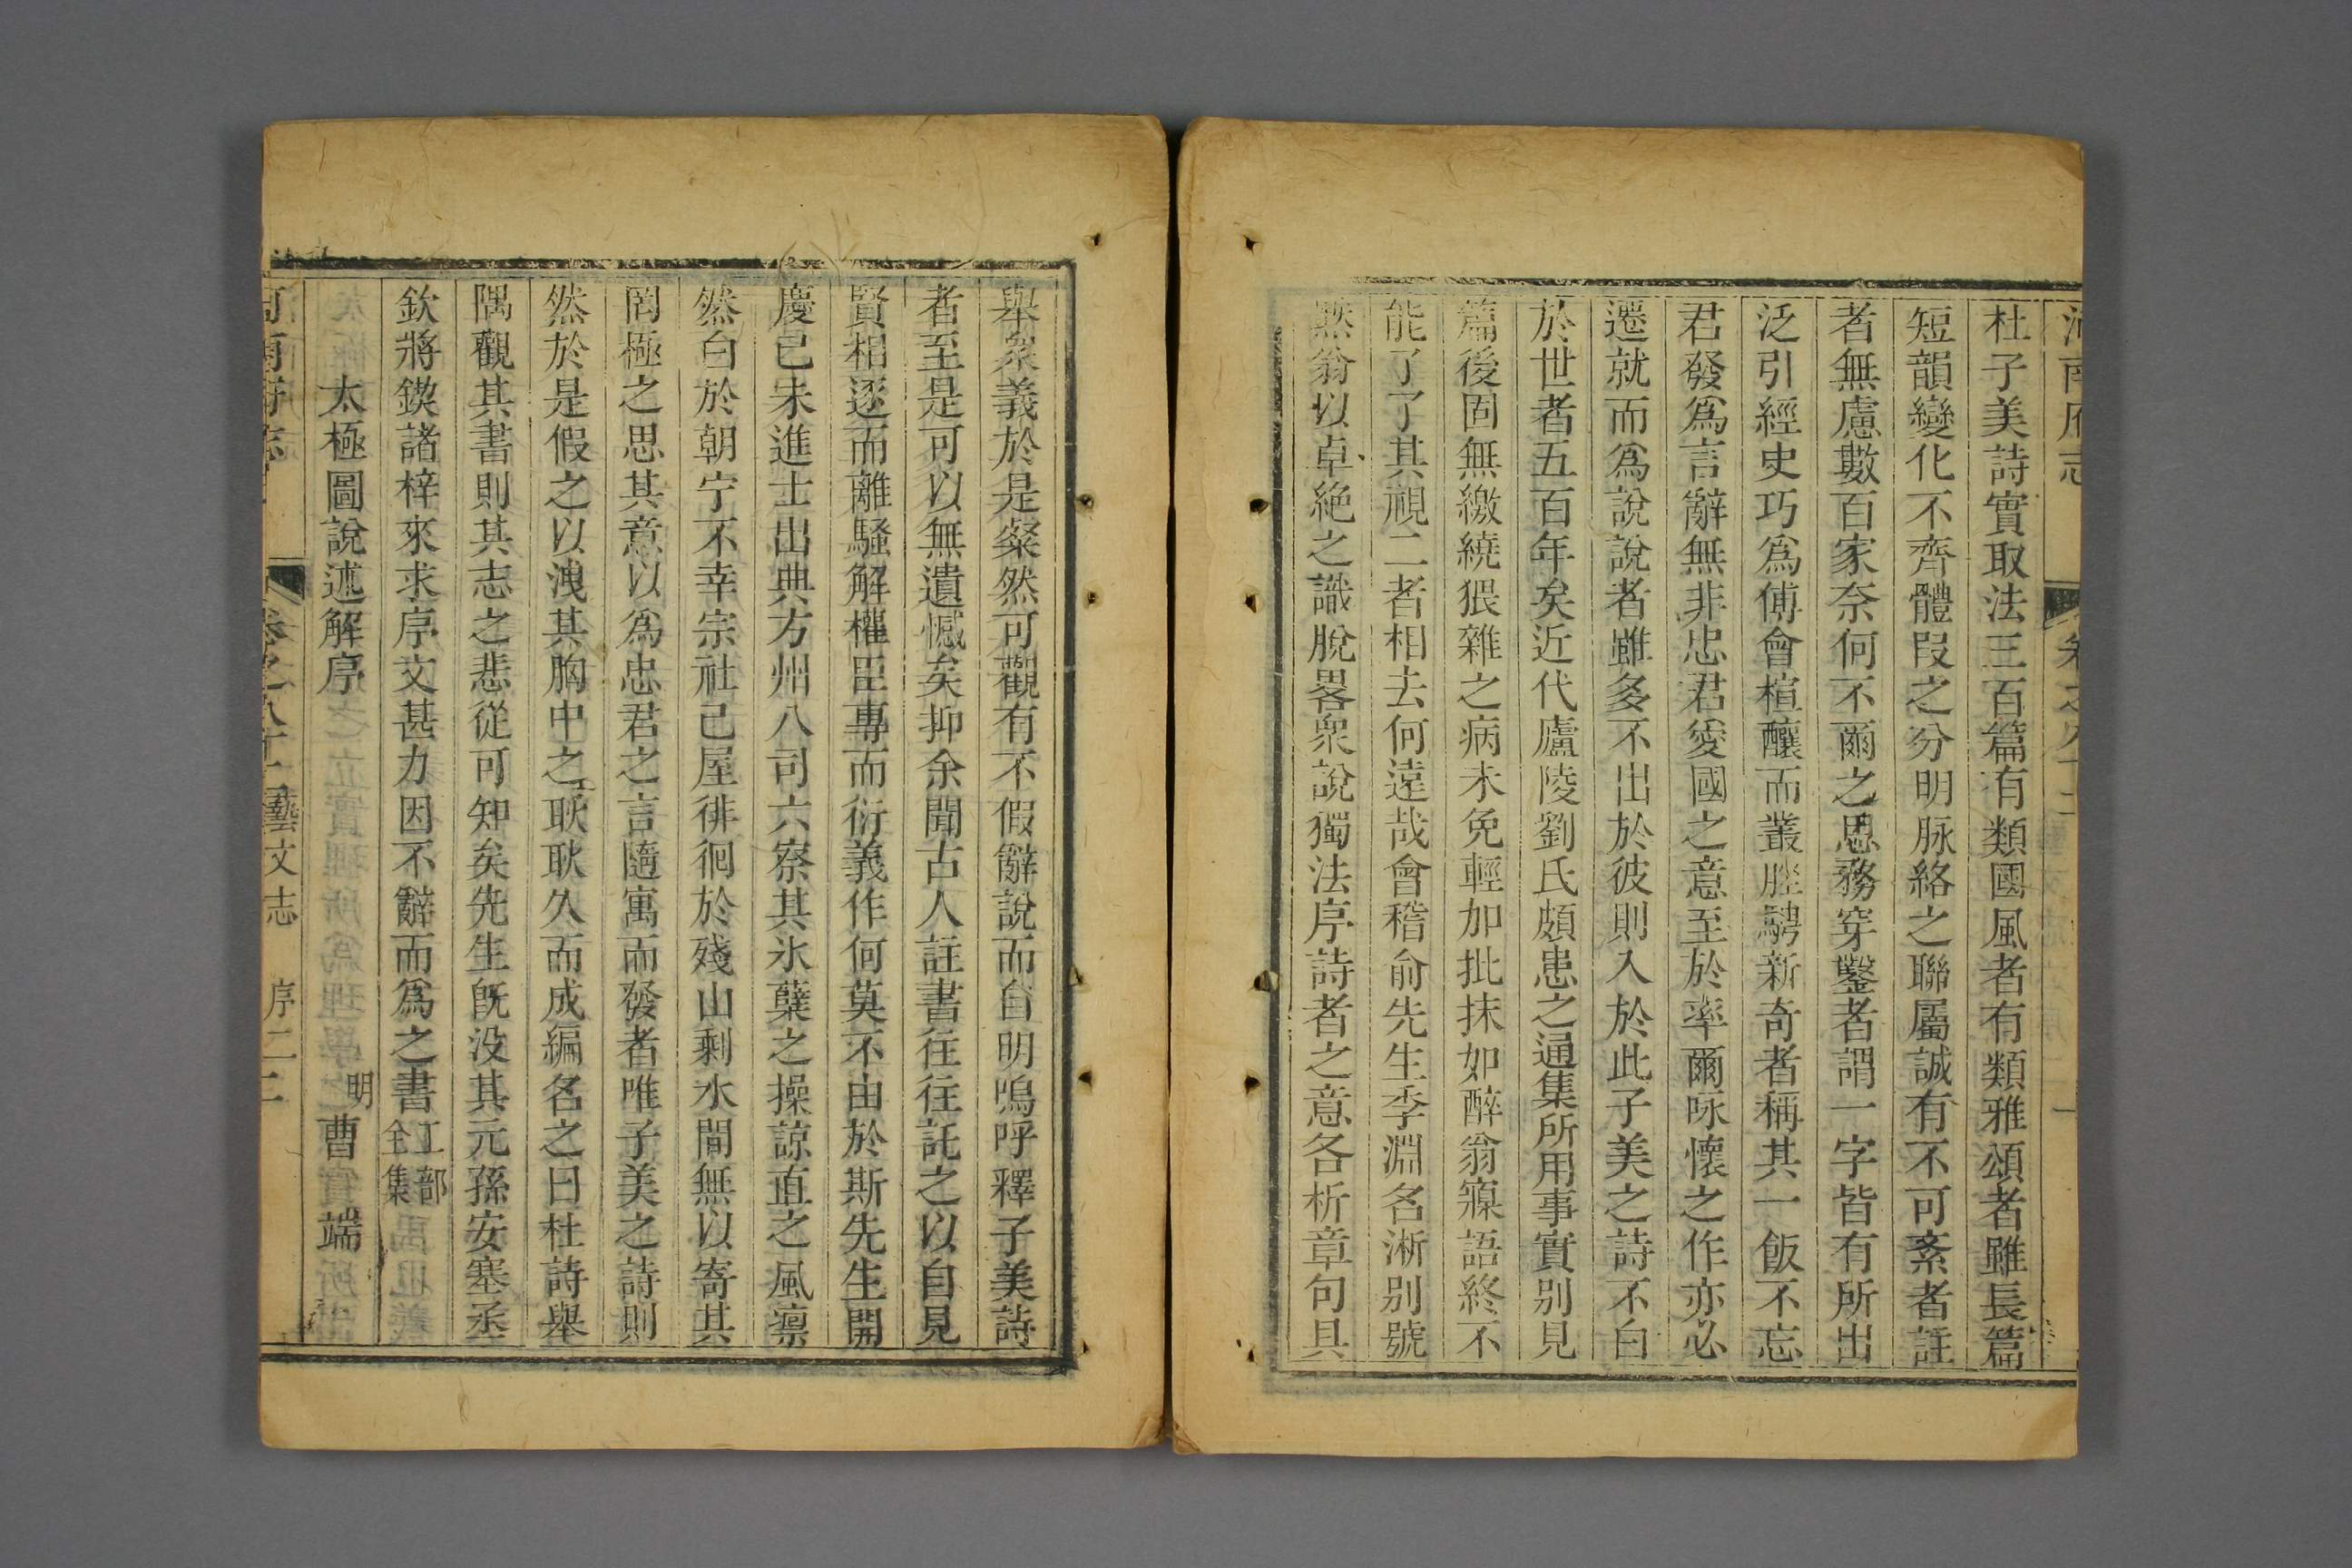 河南府志 卷之八十二
杜子美詩實取法三百篇有類國風者有類雅頌者雖長篇
短韻變化不齊體段之分明脉絡之聯屬誠有不可紊者註
者無慮數百家奈何不爾之思務穿鑿者謂一字皆有所出
泛引經史巧爲傅會楦釀而叢脞騁新奇者稱其一飯不忘
君發爲言辭無非忠君愛國之意至於率爾咏懷之作亦必
遷就而爲說說者雖多不出於彼則入於此子美之詩不白
於世者五百年矣近代廬陵劉氏頗患之通集所用事實别見
篇後固無繳繞猥雜之病未免輕加批抹如醉翁寱語終不
能了了其視二者相去何遠哉會稽俞先生季淵名淅别號
默翁以卓絶之識脫畧衆說獨法序詩者之意各析章句具
舉衆義於是粲然可觀有不假辭說而自明嗚呼釋子美詩
者至是可以無遺憾矣抑余聞古人註書往往託之以自見
賢相逐而離騷解權臣專而衍義作何莫不由於斯先生開
慶己未進士出典方州八司六察其氷蘖之操諒直之風凛
然白於朝宁不幸宗社已屋徘徊於殘山剩水間無以寄其
罔極之思其意以爲忠君之言隨寓而發者唯子美之詩則
然於是假之以洩其胸中之耿耿久而成編名之曰杜詩舉
隅觀其書則其志之悲從可知矣先生旣没其元孫安塞丞
欽將鍥諸梓來求序文甚力因不辭而爲之書 工部全集
太極圖說述解序 明曹端
河南府志 卷之八十二 藝文志 序 二